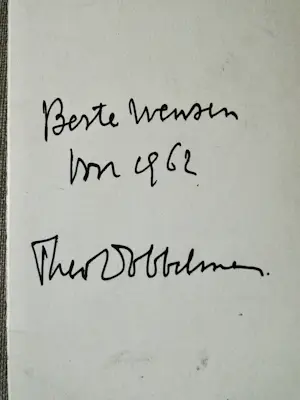 Beste Wensen
voor 1962
Theo Dobbelman.